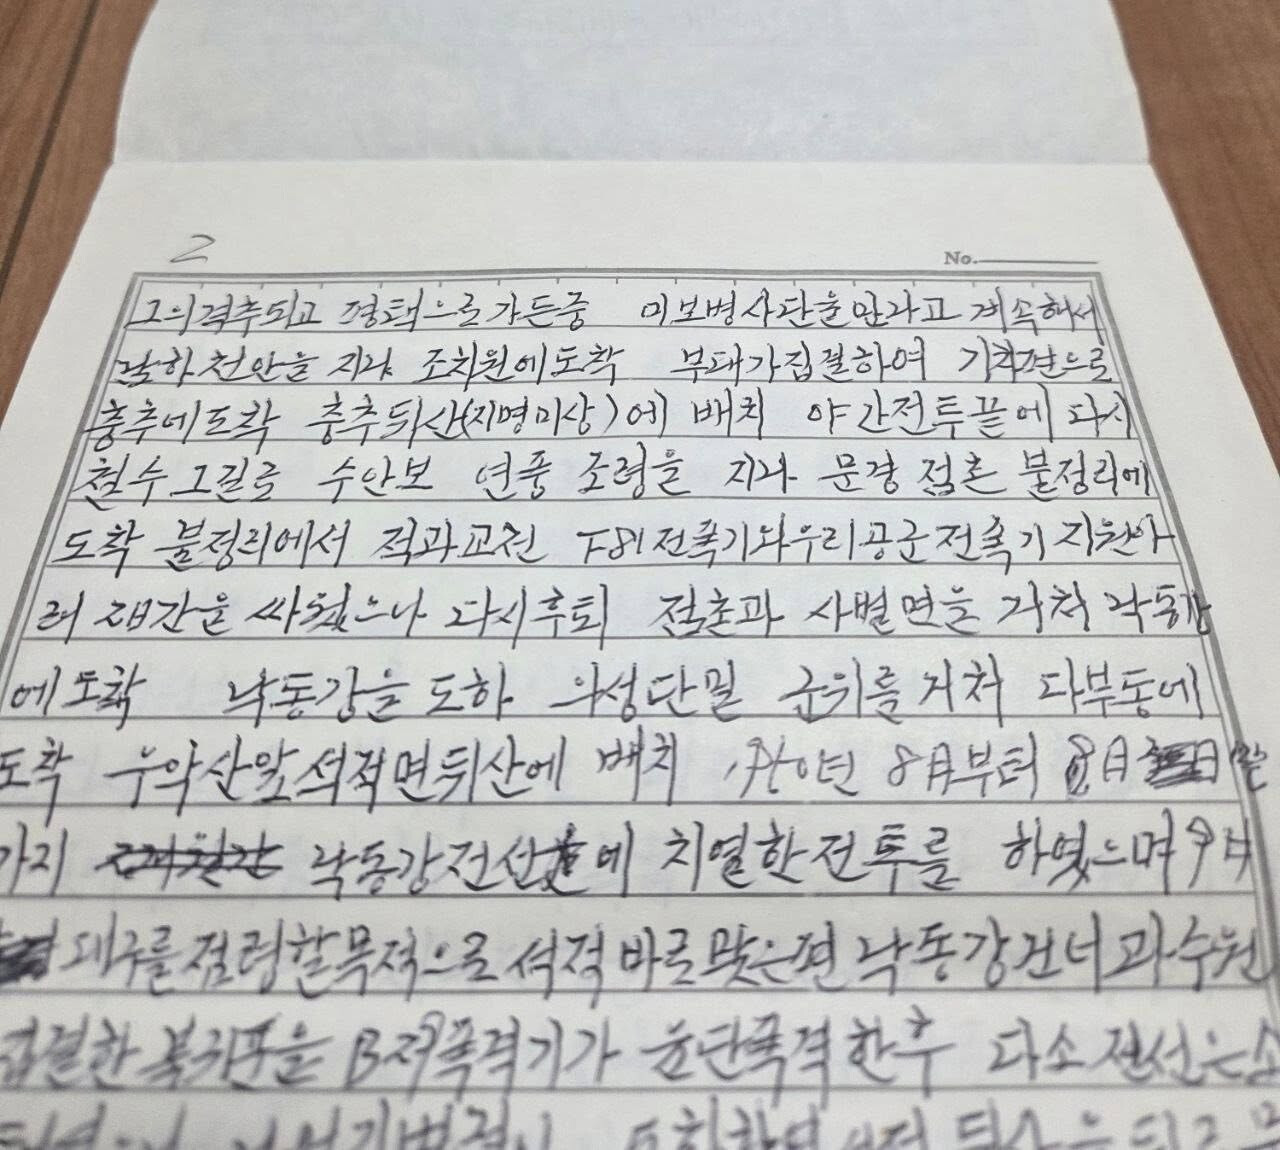 2
No.
그의 격추되고 평택으로 가든중 미보병사단을 만나고 계속해서
남하 천안을 지나 조치원에 도착 부대가 집결하여 기차편으로
충주에 도착 충주뒤산(지명미상)에 배치 야간전투끝에 다시
철수 그길로 수안보 연풍 조령을 지나 문경 점촌 불정리에
도착 불정리에서 적과교전 F81전폭기와 우리공군전폭기 지원아
래 싸웠으나 다시후퇴 점촌과 사벌면을 거처 낙동강
에 도착 낙동강을 도하 의성단밀 군위를 거처 다부동에
도착 산앞 석적면뒤산에 배치 8月부터 8月
가지 낙동강전선에 치열한전투를 하였으며 9月
대구를 점령할목적으로 석적 바로맞은편 낙동강건너 과수원
집결한 폭격기가 융단폭격한후 다소 전선은